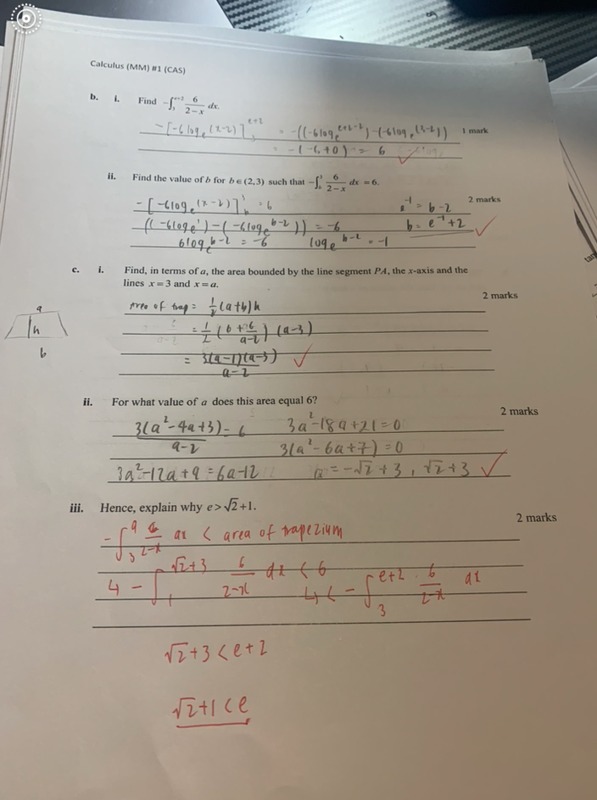 Calculus (MM) #1 (CAS)
b. i. Find -∫₃^(e+2) 6/(2-x) dx.
-[-6logₑ(x-2)]₃^(e+2) = -((-6logₑ^(e+2-2))-(-6logₑ(3-2))) 1 mark
= -(-6+0) = 6 ✓
ii. Find the value of b for b∈(2,3) such that -∫ 6/(2-x) dx = 6.
2 marks
-[-6logₑ(x-2)] = 6 = b-2
((-6logₑ¹)-(-6logₑ^(b-2))) = -6 b = e⁻¹+2 ✓
6logₑ^(b-2) = -6 logₑ^(b-2) = -1
c. i. Find, in terms of a, the area bounded by the line segment PA, the x-axis and the
lines x=3 and x=a.
2 marks
a
area of trap = 1/2(a+b)h
h
= 1/2(6+6/(a-2))(a-3)
b
= 3(a-1)(a-3)/(a-2) ✓
ii. For what value of a does this area equal 6?
2 marks
3(a²-4a+3)/(a-2) = 6 3a²-18a+21=0
3(a²-6a+7)=0
3a²-12a+9=6a-12 a=-√2+3, √2+3 ✓
iii. Hence, explain why e>√2+1.
2 marks
-∫₃^a 6/(2-x) dx < area of trapezium
-∫^(√2+3) 6/(2-x) dx < 6 < -∫₃^(e+2) 6/(2-x) dx
√2+3<e+2
√2+1<e